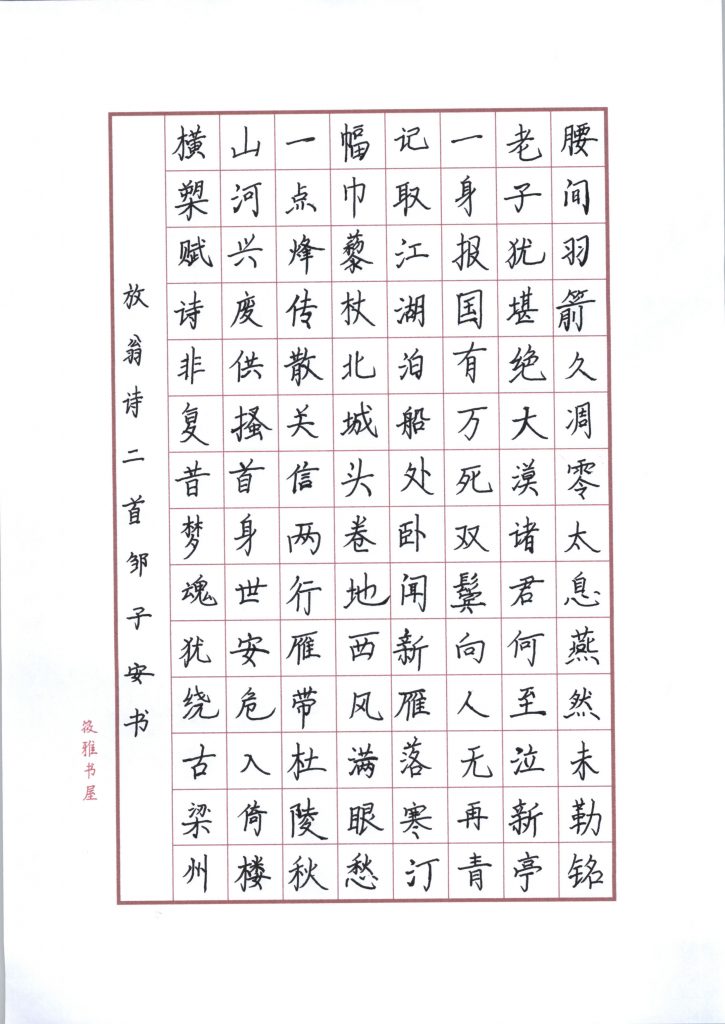 腰间羽箭久凋零太息燕然未勒铭
老子犹堪绝大漠诸君何至泣新亭
一身报国有万死双鬓向人无再青
记取江湖泊船处卧闻新雁落寒汀
幅巾藜杖北城头卷地西风满眼愁
一点烽传散关信两行雁带杜陵秋
山河兴废供搔首身世安危入倚楼
横槊赋诗非复昔梦魂犹绕古梁州
放翁诗二首邹子安书
筱雅书屋